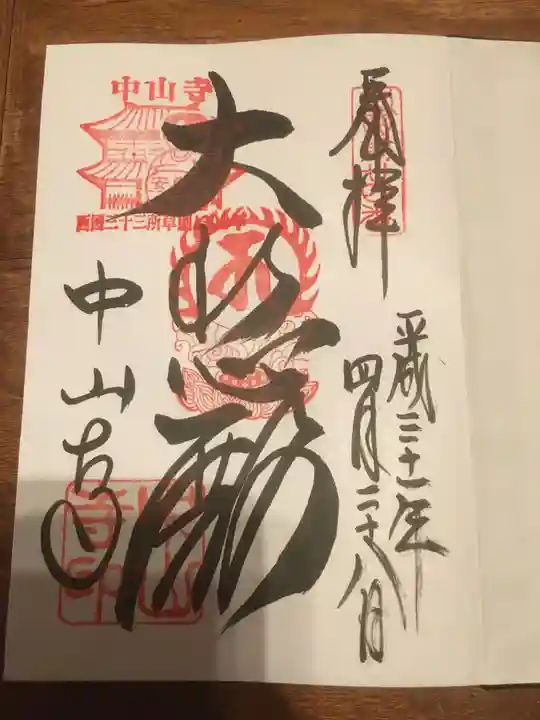 奉拝
平成三十一年
四月二十八日
大悲殿
中山寺
中山寺
西国三十三所草創1300年